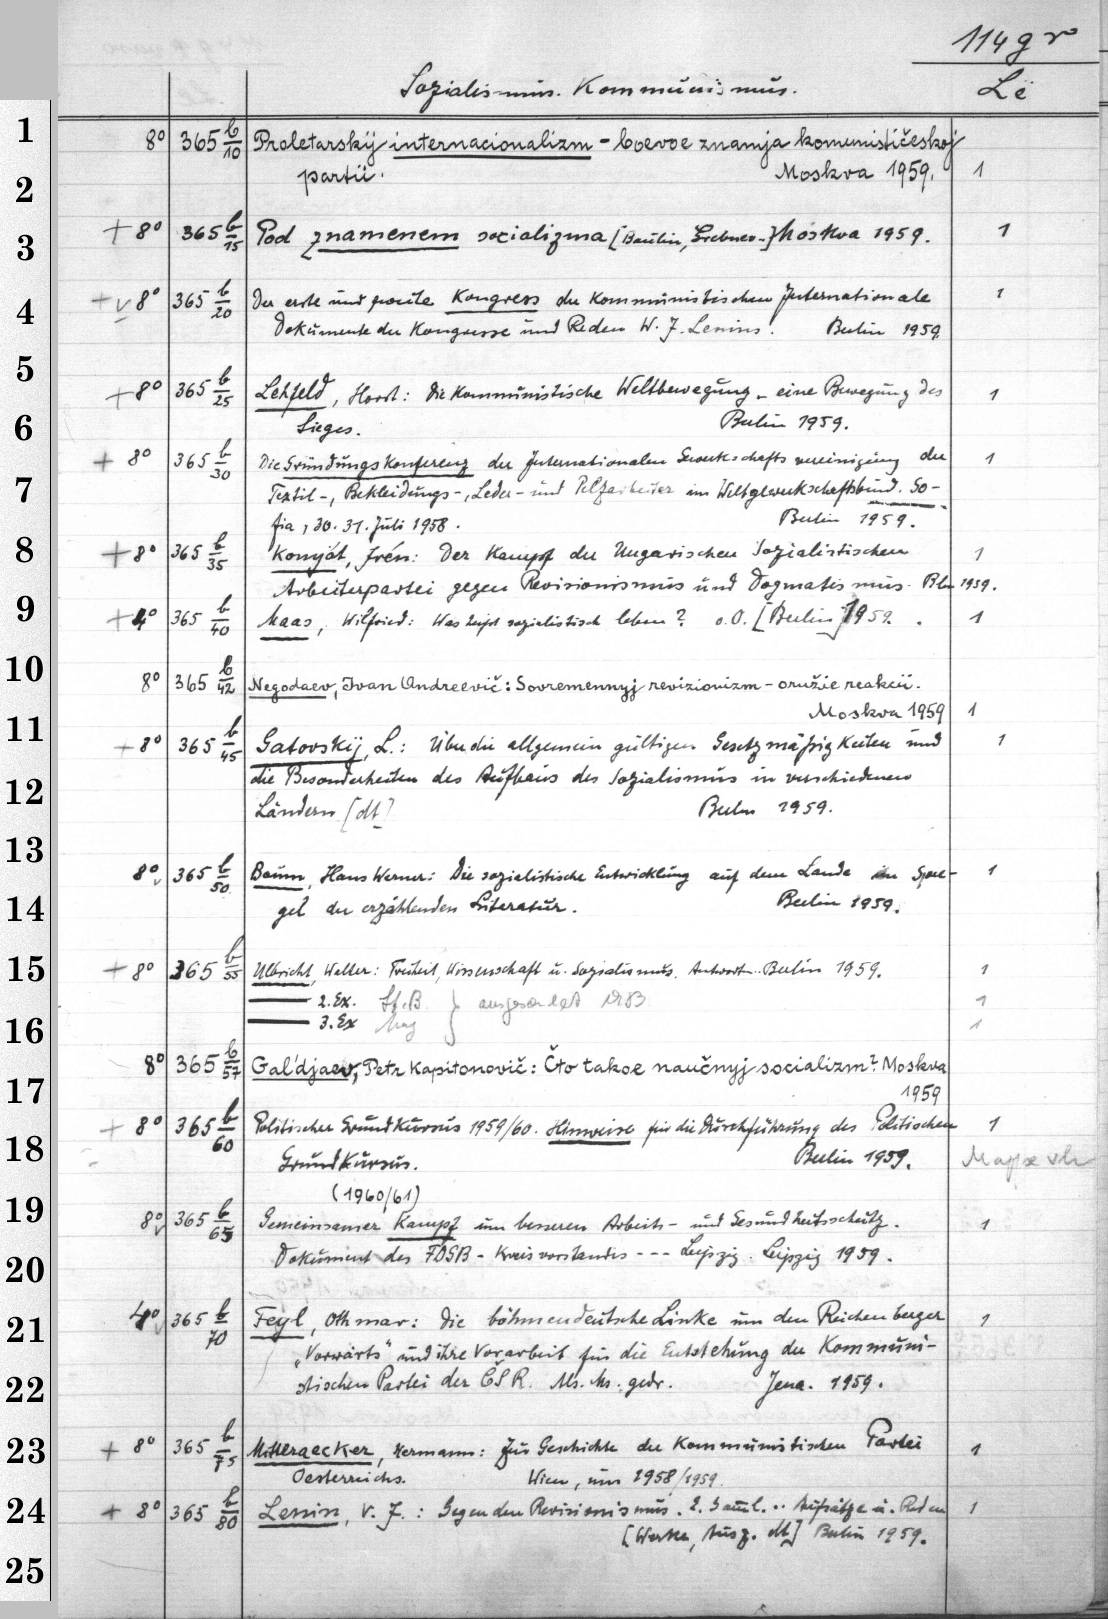 114 g r
Sozialismus. Kommunismus. Le
1
8° 365 b/10 Proletarskij internacionalizm - boevoe znamja komunističeskoj
2
partii. Moskva 1959. 1
3
+ 8° 365 b/15 Pod znamenem socializma [Baulin, Grebnev..] Moskva 1959. 1
4
+ v 8° 365 b/20 Der erste und zweite Kongress der Kommunistischen Internationale 1
Dokumente der Kongresse und Reden W. J. Lenins. Berlin 1959.
5
+ 8° 365 b/25 Lehfeld, Horst: Die Kommunistische Weltbewegung - eine Bewegung des 1
6
Sieges. Berlin 1959.
+ 8° 365 b/30 Die Gründungskonferenz der Internationalen Gewerkschaftsvereinigung der 1
7
Textil-, Bekleidungs-, Leder- und Pelzarbeiter im Weltgewerkschaftsbund. So-
fia, 30. 31. Juli 1958. Berlin 1959.
8
+ 8° 365 b/35 Konyát, Irén: Der Kampf der Ungarischen Sozialistischen 1
Arbeiterpartei gegen Revisionismus und Dogmatismus. Bln 1959.
9
+ 4° 365 b/40 Maas, Wilfried: Was heisst sozialistisch leben? o.O. [Berlin] 1959. 1
10
8° 365 b/42 Negodaev, Ivan Andreevič: Sovremennyj revizionizm - oružie reakcii.
Moskva 1959 1
11
+ 8° 365 b/45 Gatovskij, L.: Über die allgemein gültigen Gesetzmäßigkeiten und 1
die Besonderheiten des Aufbaus des Sozialismus in verschiedenen
12
Ländern [dt] Berlin 1959.
13
8° v 365 b/50 Baum, Hans Werner: Die sozialistische Entwicklung auf dem Lande im Spie- 1
14
gel der erzählenden Literatur. Berlin 1959.
15
+ 8° 365 b/55 Ulbricht, Walter: Freiheit, Wissenschaft u. Sozialismus. Antwort.. Berlin 1959. 1
2. Ex. ausgesondert 1983 1
16
3. Ex Mag 1
8° 365 b/57 Gal'djaev, Petr Kapitonovič: Čto takoe naučnyj socializm? Moskva
17
1959
+ 8° 365 b/60 Politischer Grundkursus 1959/60. Hinweise für die Durchführung des Politischen 1
18
Grundkursus. Berlin 1959.
19
(1960/61)
8° v 365 b/65 Gemeinsamer Kampf um besseren Arbeits- und Gesundheitsschutz. 1
20
Dokument des FDGB - Kreisvorstandes - - - Leipzig. Leipzig 1959.
21
4° v 365 b/70 Feyl, Othmar: Die böhmendeutsche Linke um den Reichenberger 1
„Vorwärts" und ihre Vorarbeit für die Entstehung der Kommuni-
22
stischen Partei der ČSR. Ms. gedr. Jena. 1959.
23
+ 8° 365 b/75 Mitteraecker, Hermann: Zur Geschichte der Kommunistischen Partei 1
Oesterreichs. Wien, um 1958/1959
24
+ 8° 365 b/80 Lenin, V. J.: Gegen den Revisionismus. 2. Samml. .. Aufsätze u. Reden 1
[Werke, Ausz. dt] Berlin 1959.
25